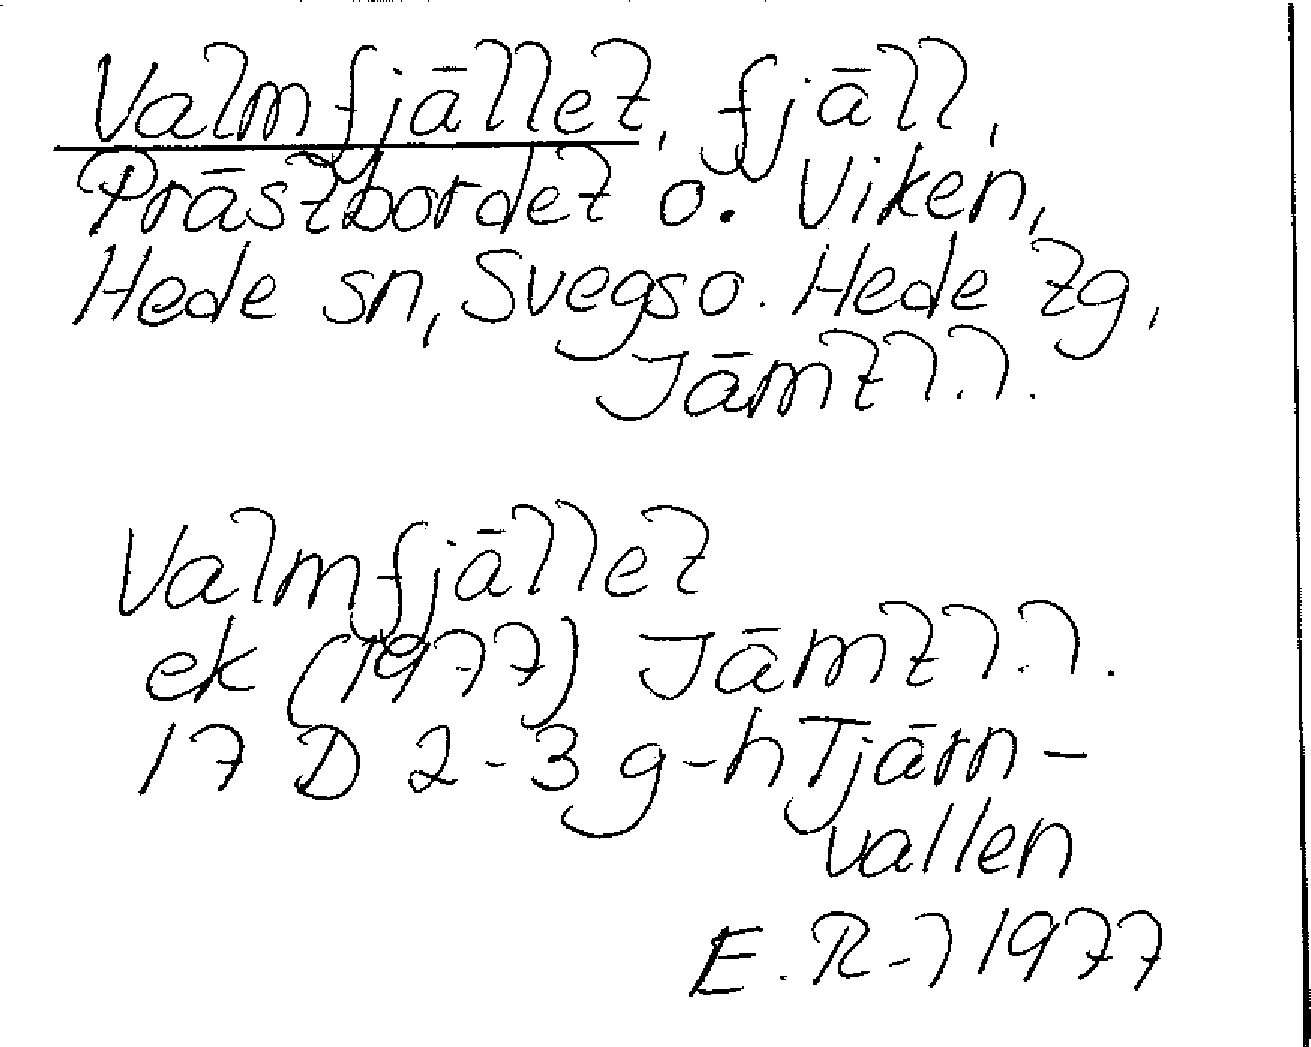 Valmfjället, fjäll,
Prästbordet o. Viken,
Hede sn, Svegs o. Hede tg,
Jämtl. l.
Valmfjället
ek (1977) Jämtl. l.
17 D 2-3 g-h Tjärn-
vallen
E. R-l 1977